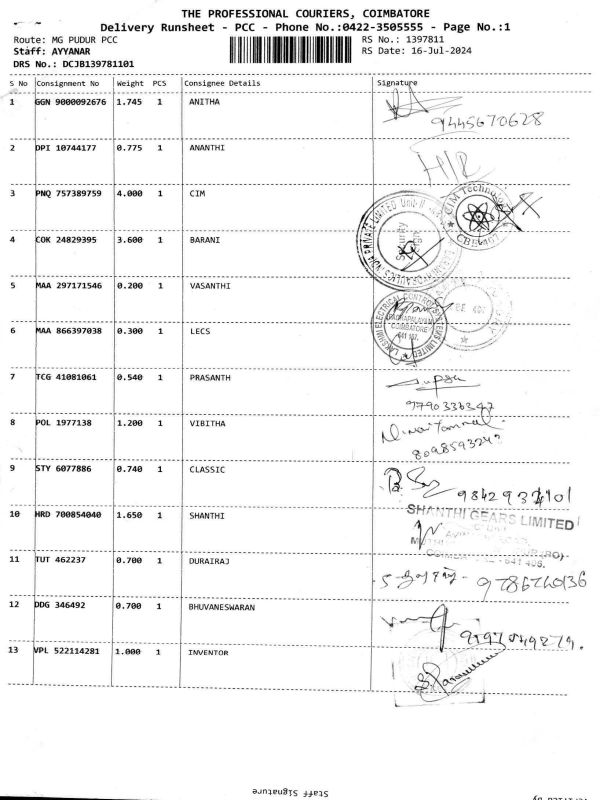 THE PROFESSIONAL COURIERS, COIMBATORE
Delivery Runsheet - PCC - Phone No.:0422-3505555 - Page No.:1
Route: MG PUDUR PCC
RS No.: 1397811
Staff: AYYANAR
RS Date: 16-Jul-2024
DRS No.: DCJB139781101
S No Consignment No Weight PCS Consignee Details Signature
1 GGN 9000092676 1.745 1 ANITHA
9445670628
2 DPI 10744177 0.775 1 ANANTHI
H/R
3 PNQ 757389759 4.000 1 CIM
CIM Technology
4 COK 24829395 3.600 1 BARANI
PRIVATE LIMITED Unit-II
Security
Sign
5 MAA 297171546 0.200 1 VASANTHI
LAKSHMI ELECTRICAL CONTROL SYSTEMS LIMITED
COIMBATORE
641 107.
6 MAA 866397038 0.300 1 LECS
7 TCG 41081061 0.540 1 PRASANTH
9790336347
8 POL 1977138 1.200 1 VIBITHA
8098593242
9 STY 6077886 0.740 1 CLASSIC
10 HRD 700854040 1.650 1 SHANTHI
SHANTHI GEARS LIMITED
11 TUT 462237 0.700 1 DURAIRAJ
9786760136
12 DDG 346492 0.700 1 BHUVANESWARAN
13 VPL 522114281 1.000 1 INVENTOR
Staff Signature